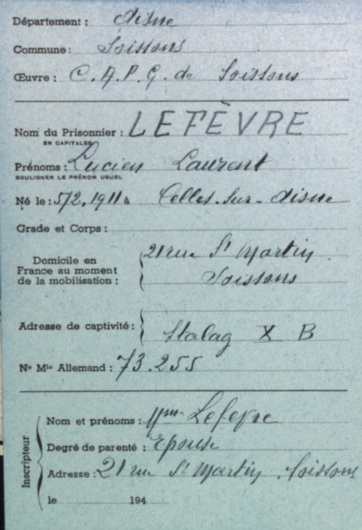 Département : Aisne
Commune : Soissons
Œuvre : C.A.P.G. de Soissons
Nom du Prisonnier : LEFÈVRE
EN CAPITALES
Prénoms : Lucien Laurent
SOULIGNER LE PRÉNOM USUEL
Né le : 5/2.1911 à Celles-sur-Aisne
Grade et Corps :
Domicile en France au moment de la mobilisation : 21 rue St Martin
Soissons
Adresse de captivité : Stalag X B
No Mle Allemand : 73.255
Inscripteur
Nom et prénoms : Mme Lefèvre
Degré de parenté : Epouse
Adresse : 21 rue St Martin, Soissons
le 194